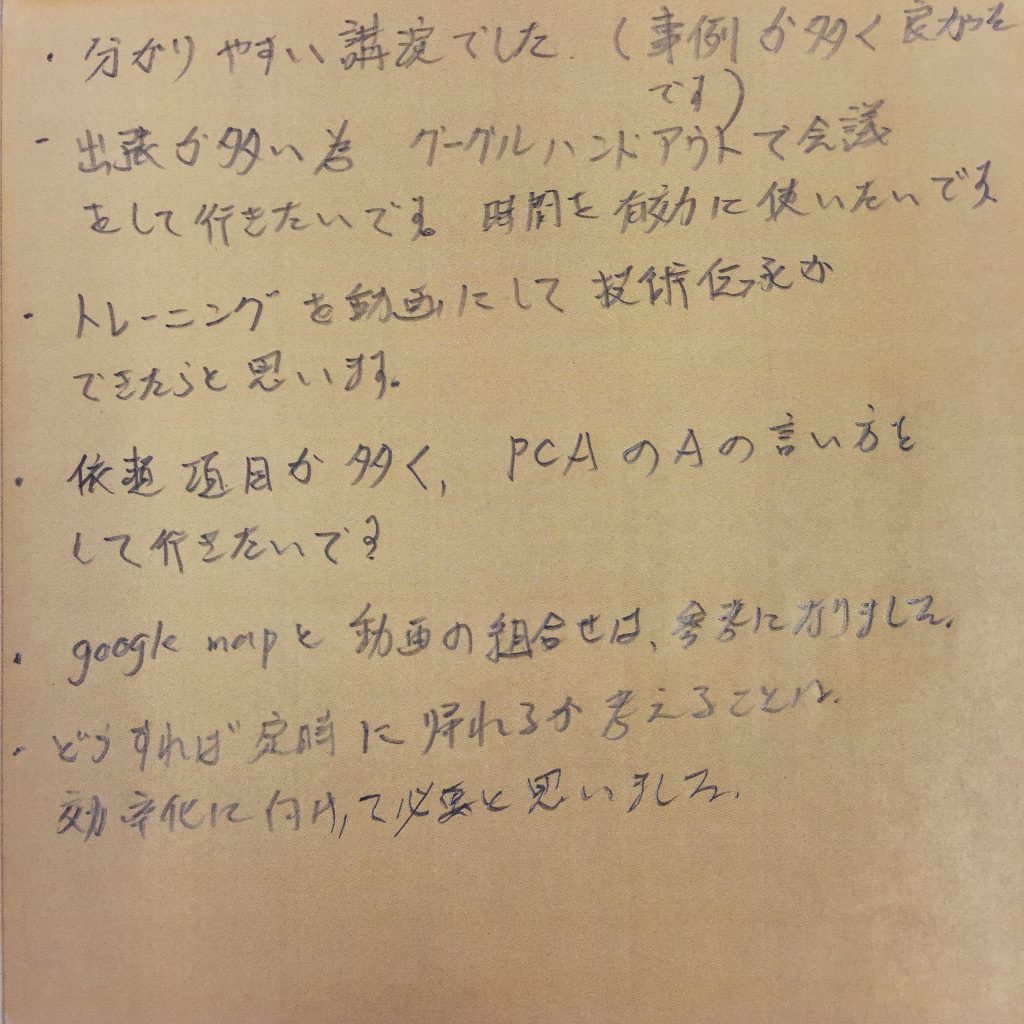 ・分かりやすい講演でした.（事例が多く良かった
です）
・出張が多い為 グーグルハンドアウトで会議
をして行きたいです。時間を有効に使いたいです
・トレーニングを動画にして技術伝承が
できたらと思います。
・依頼項目が多く, PCAのAの言い方を
して行きたいです
・google mapと動画の組合せは、参考になりました.
・どうすれば定時に帰れるか考えることは.
効率化に付けて必要と思いました.